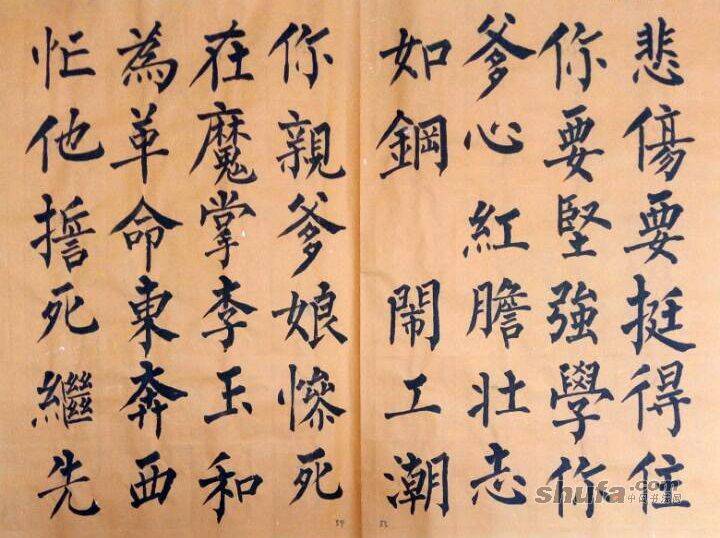 悲傷要挺得住
你要堅強學你
爹心 紅膽壯志
如鋼 鬧工潮
你親爹娘慘死
在魔掌李玉和
為革命東奔西
忙他誓死繼先
53
shufa.com
中国书法网